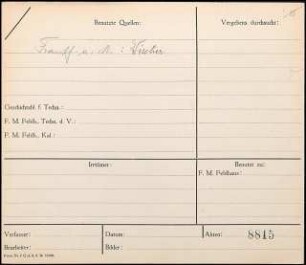 Benutzte Quellen:
Vergebens durchsucht:
Frankf. a. M. :
Geschichtsbl. f. Techn.:
F. M. Feldh., Techn. d. V.:
F. M. Feldh., Kal.:
Irrtümer:
Benutzt zu:
F. M. Feldhaus:
Verfasser:
Datum:
Akten: 8815
Bearbeiter:
Bilder: